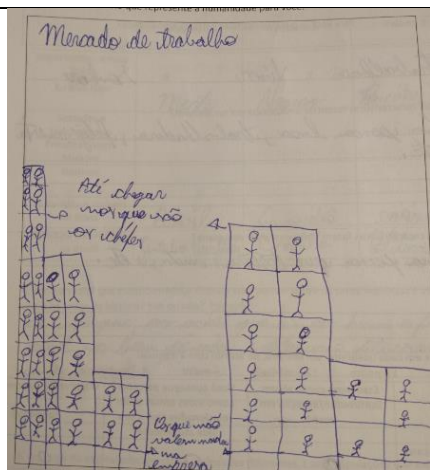 que represente a humanidade para você.
Mercado de trabalho
Até chegar
nos que são
os chefes
Os que não
valem nada
na
empresa